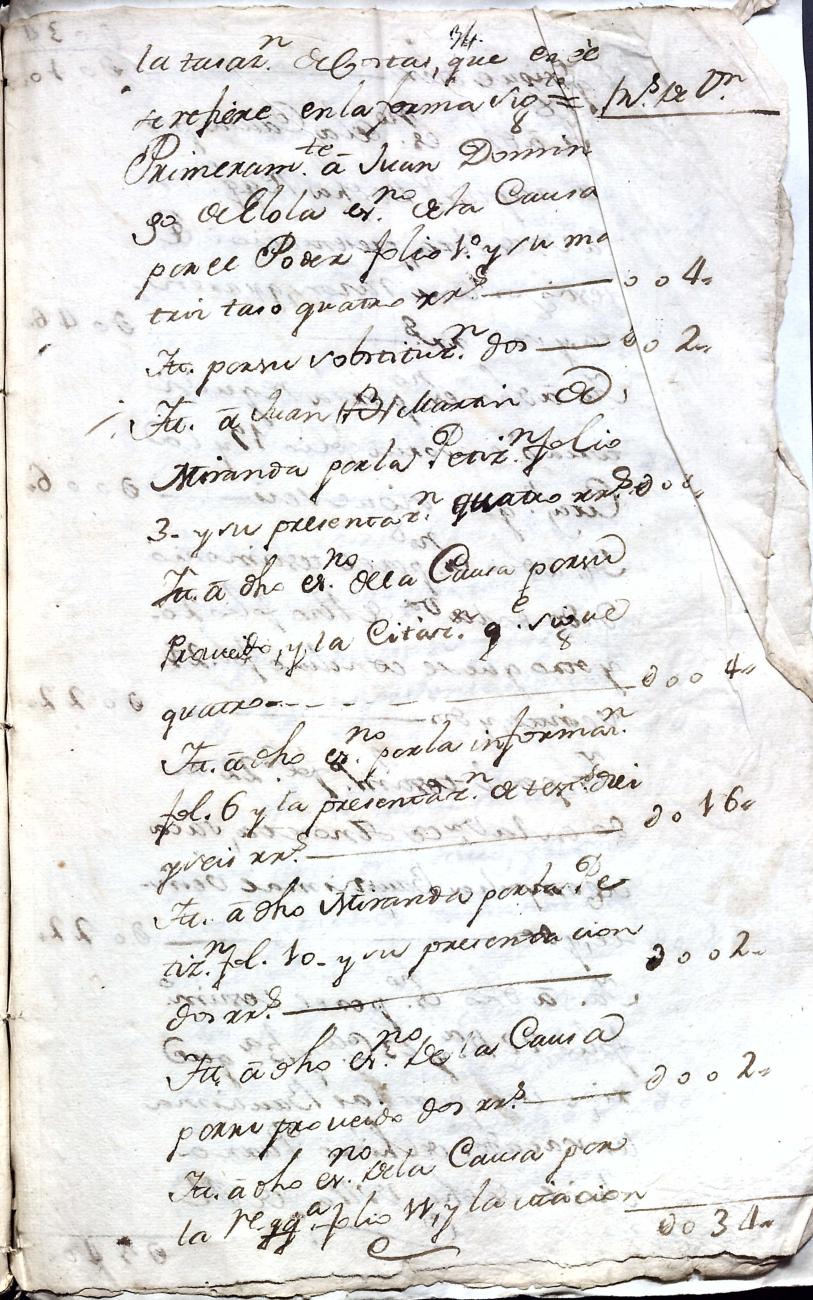 34
la tasaz.n de Costas, que en el
se refiere en la forma sig.
Rs de Vn
Primeram.te â Juan Domin
go de Elola es.no de la Causa
por el Poder folio 1º y su ma
triz taso quatro rr.s — 004
It. por su substituz.n dos — 002
It. â Juan Bta Martin de
Miranda por la Petiz.n folio
3 - y su presentaz.n quatro rr.s
It. â dho es.no de la Causa por su
Proveido, y la Citaz.n q.e sigue
quatro — 004
It. â dho es.no por la informaz.n
fol. 6 y la presentaz.n de tes.s diez
y seis rr.s — 0016
It. â dho Miranda por la Pe
tiz.n fol. 10 - y su presentacion
dos rr.s — 002
It. â dho es.no de la Causa
por su proveido dos rr.s — 002
It. â dho es.no de la Causa por
la folio 11, y la citacion
0034